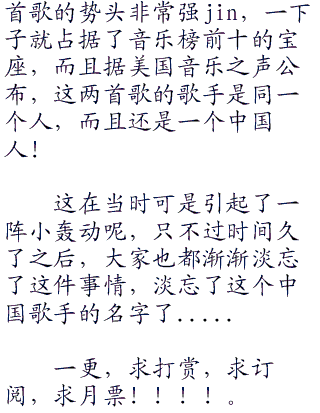 首歌的势头非常强jin，一下
子就占据了音乐榜前十的宝
座，而且据美国音乐之声公
布，这两首歌的歌手是同一
个人，而且还是一个中国
人！
这在当时可是引起了一
阵小轰动呢，只不过时间久
了之后，大家也都渐渐淡忘
了这件事情，淡忘了这个中
国歌手的名字了.....
一更，求打赏，求订
阅，求月票！！！！。